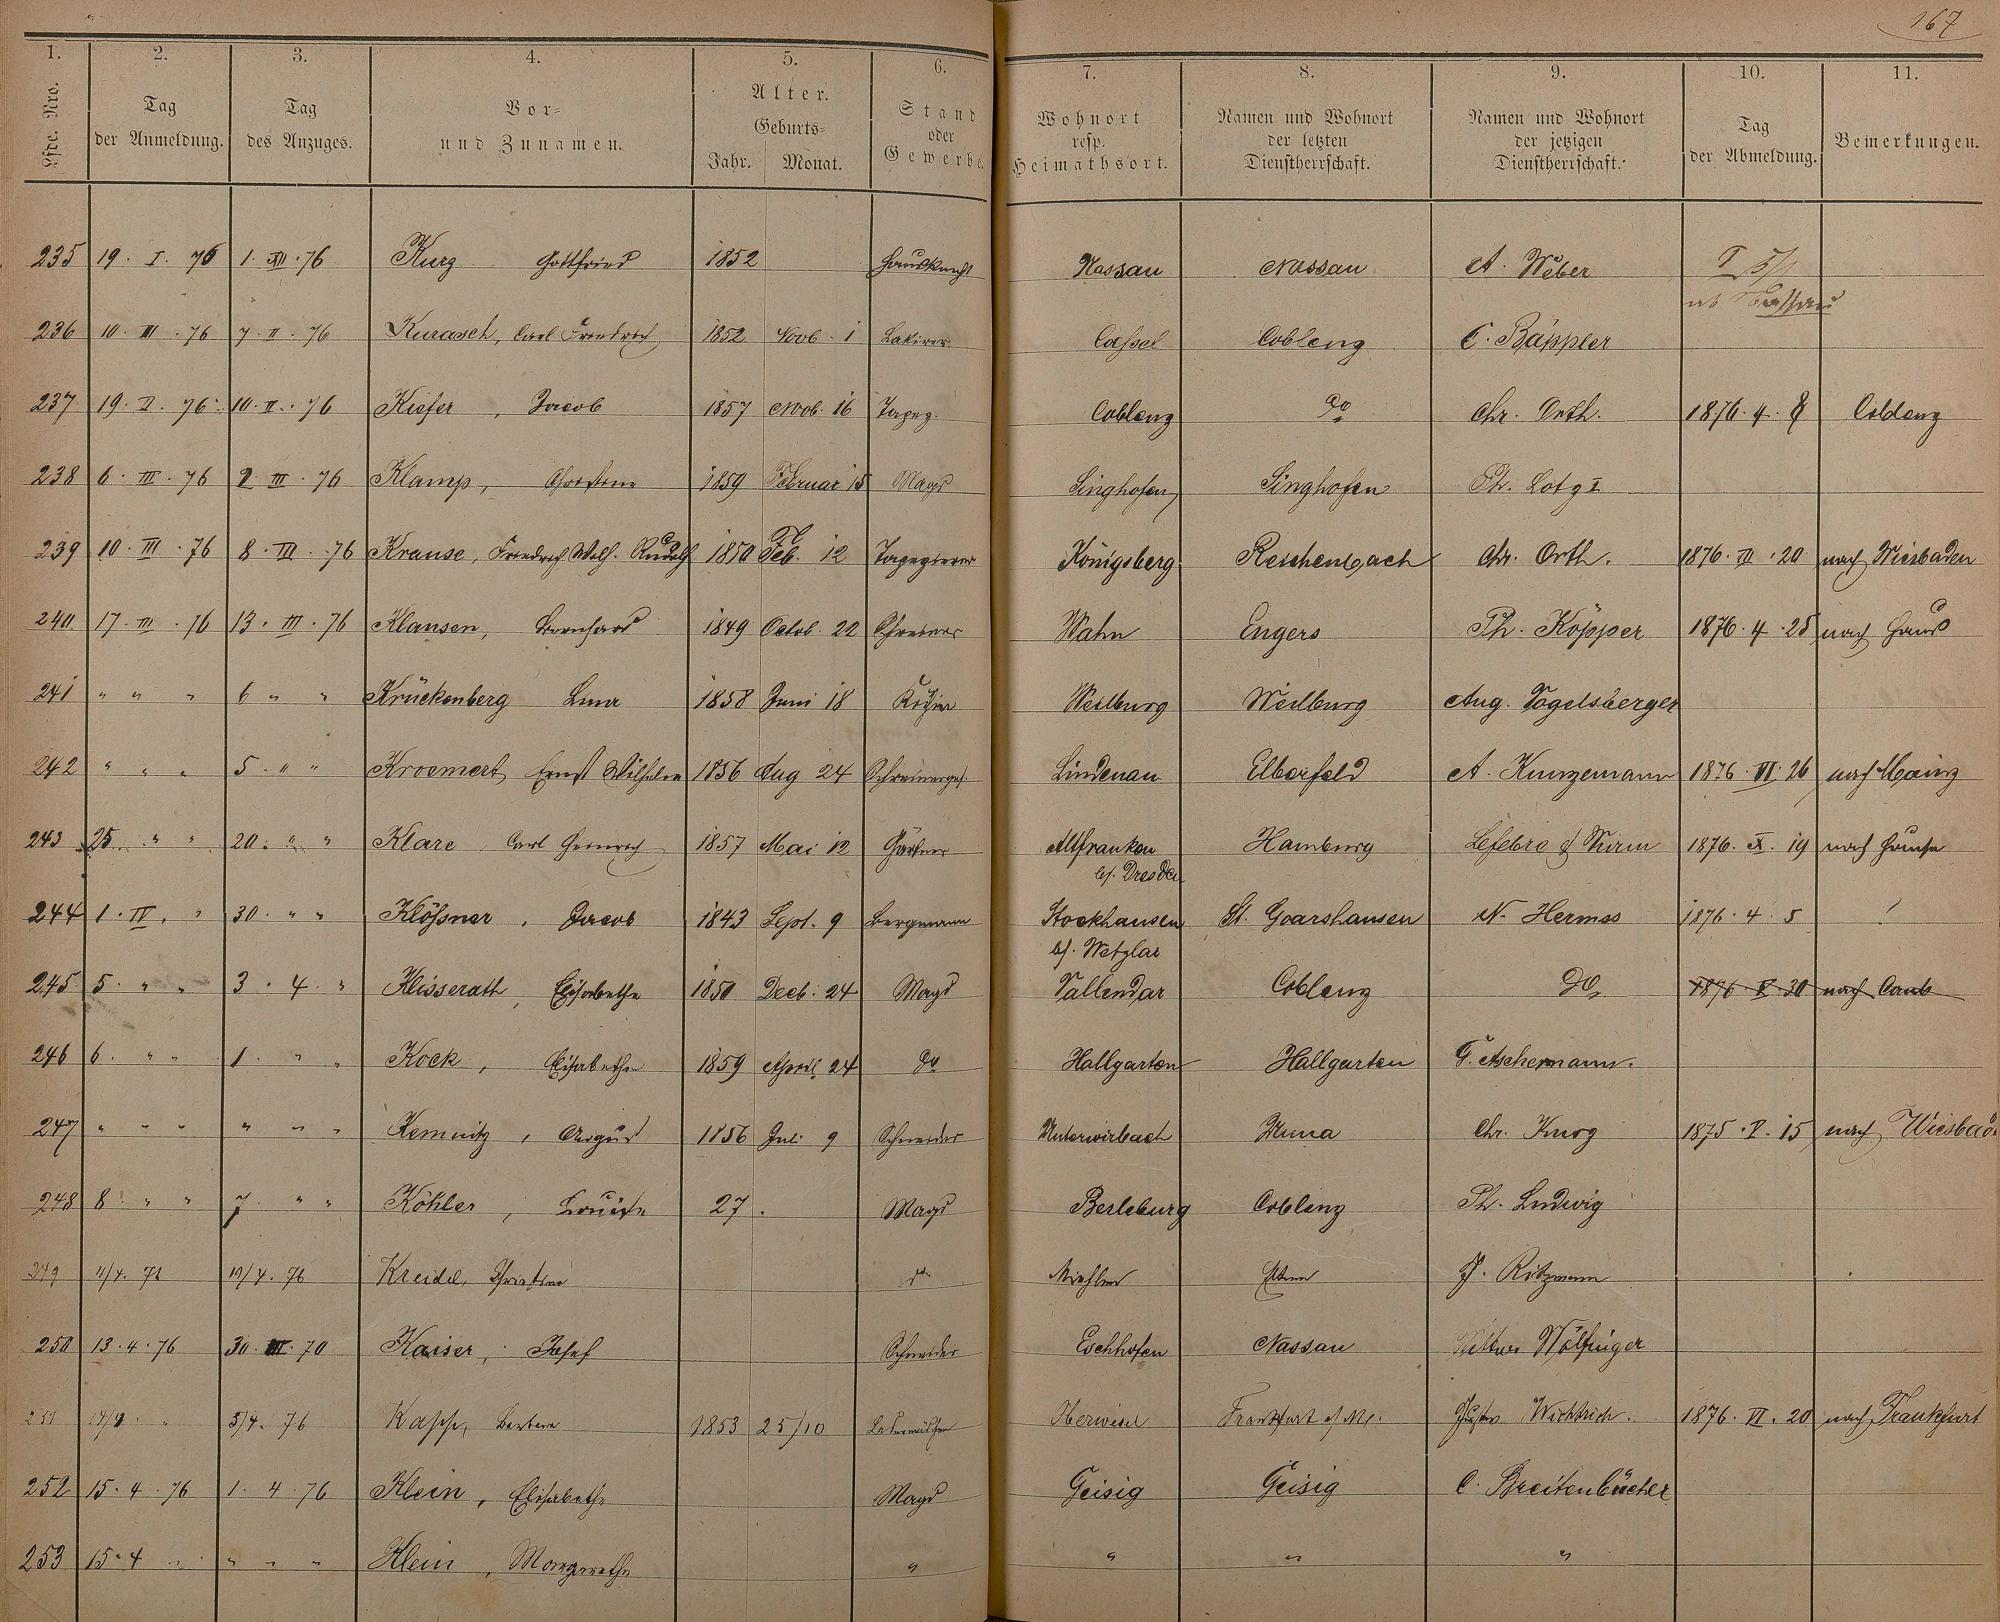 167
1. 2. 3. 4. 5. 6. 7. 8. 9. 10. 11.
Lfde. Nro. Tag der Anmeldung. Tag des Anzuges. Vor= und Zunamen. Alter. Geburts= Jahr. Monat. Stand oder Gewerbe. Wohnort resp. Heimathsort. Namen und Wohnort der letzten Dienstherrschaft. Namen und Wohnort der jetzigen Dienstherrschaft. Tag der Abmeldung. Bemerkungen.
235 19. I. 76 1. XII. 76 Kurz Gottfried 1852 Hausknecht Nassau Nassau A. Weber
236 10. III. 76 7. II. 76 Kurasch, Carl Friedrich 1852 Novb. 1 Lakirer Cassel Coblenz C. Bäppler
237 19. II. 76 10. II. 76 Kiefer, Jacob 1857 Novb. 16 Tapez. Coblenz do Chr. Orth. 1876. 4. 8 Coblenz
238 6. III. 76 2 III. 76 Klamp, Christine 1859 Februar 15 Magd Singhofen Singhofen Ph. Lotz I
239 10. III. 76 8. III. 76 Krause, Friedrich Wilh. Rudolf 1850 Feb. 12 Tapezierer Königsberg Reichenbach Chr. Orth. 1876. III. 20 nach Wiesbaden
240 17. III. 76 13. III. 76 Klansen, Bernhard 1849 Octob. 22 Schreiner Wahn Engers Ph. Köpper 1876. 4. 25 nach Haus
241 " " " 6 " " Krückenberg Lina 1858 Juni 18 Köchin Weilburg Weilburg Aug. Vogelsberger
242 " " " 5. " " Kroemert, Ernst Wilhelm 1856 Aug 24 Schreinerges. Lindenau Elberfeld A. Kunzemann 1876. VI. 26 nach Mainz
243 25. " " 20. " " Klare, Carl Heinrich 1857 Mai 12 Gärtner Altfranken Hamburg Lefebre & Sturm 1876. X. 19 nach Hause
bei Dresden
244 1. IV. " 30. " " Klößner, Jacob 1843 Sept. 9 Bergmann Stockhausen St. Goarshausen N. Hermes 1876. 4. 5 !
bei Wetzlar
245 5. " " 3. 4. " Klisserath, Elisabethe 1850 Decb. 24 Magd Vallendar Coblenz do 1876. V. 30 nach Caub
246 6. " " 1. " " Kock, Elisabethe 1859 April 24 do Hallgarten Hallgarten G. Aschermann.
247 " " " " " " Kemnitz, August 1856 Juli 9 Schneider Unterwirbach Unna Chr. Knog 1875. V. 15 nach Wiesbad
248 8. " " 7. " " Köhler, Louise 27. Magd Berleburg Coblenz Ph. Ludwig
249 11/4. 76 10/4. 76 Kreidel, Christine do Miehlen Ems J. Ritzmann
250 13. 4. 76 30. III. 70 Kaiser, Josef Schneider Eschhofen Nassau Wittwe Wölfinger
251 14/4. " 5/4. 76 Kasche, Barbara 1853 25/10 Oberwesel Frankfurt a/M. Gustav 1876. VI. 20 nach Frankfurt
252 15. 4. 76 1. 4. 76 Klein, Elisabethe Magd Geisig Geisig C. Breitenbücher
253 15. 4 " " " " Klein, Margarethe " " " "